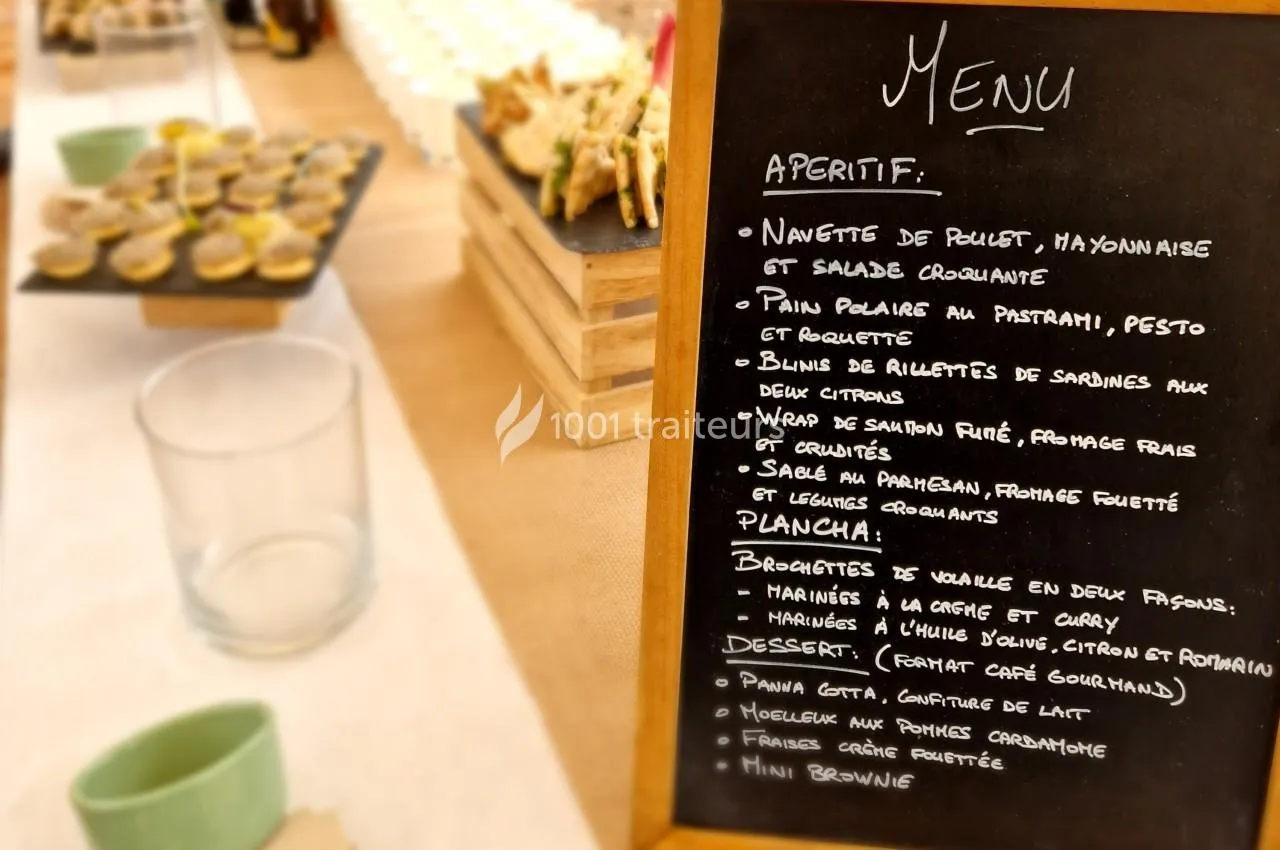 MENU
APERITIF:
• NAVETTE DE POULET, MAYONNAISE
ET SALADE CROQUANTE
• PAIN POLAIRE AU PASTRAMI, PESTO
ET ROQUETTE
• BLINIS DE RILLETTES DE SARDINES AUX
DEUX CITRONS
• WRAP DE SAUMON FUMÉ, FROMAGE FRAIS
ET CRUDITÉS
• SABLÉ AU PARMESAN, FROMAGE FOUETTÉ
ET LEGUMES CROQUANTS
PLANCHA:
BROCHETTES DE VOLAILLE EN DEUX FAÇONS:
- MARINÉES À LA CREME ET CURRY
- MARINÉES À L'HUILE D'OLIVE, CITRON ET ROMARIN
DESSERT: (FORMAT CAFÉ GOURMAND)
• PANNA COTTA, CONFITURE DE LAIT
• MOELLEUX AUX POMMES CARDAMOME
• FRAISES CRÈME FOUETTÉE
• MINI BROWNIE
1001 traiteurs